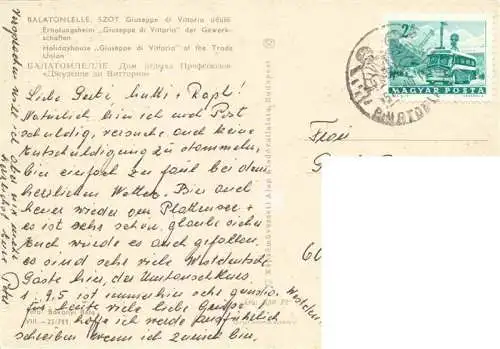 BALATONLELLE. SZOT Giuseppe di Vittorio üdülő
Erholungsheim „Giuseppe di Vittorio" der Gewerk-
schaften
Holidayhouse „Giuseppe di Vittorio" of the Trade
Union
БАЛАТОНЛЕЛЛЕ. Дом отдыха Профсоюзов
«Джузеппе ди Витторио»
2 Ft
MAGYAR POSTA
Liebe Gerti, Mutti + Rapl!
Natürlich bin ich und Post
schuldig, versuche auch keine
Entschuldigung zu stammeln,
bin einfach zu faul bei dem
herrlichen Wetter. Bin auch
heuer wieder am Plattensee +
es ist sehr schön, glaube siche
Euch würde es auch gefallen
es sind sehr viele Westdeutsch
Gäste hier, der Umtauschkurs
1 : 9.5 ist immerhin sehr günstig.
Für heute viele liebe Grüße,
hoffe ich werde ausführlich
schreiben wenn ich zurück bin.
Westdeu
Frau
G
60
Foto: Bakonyi Béla
Képzőművészeti Alap Kiadóvállalata, Budapest